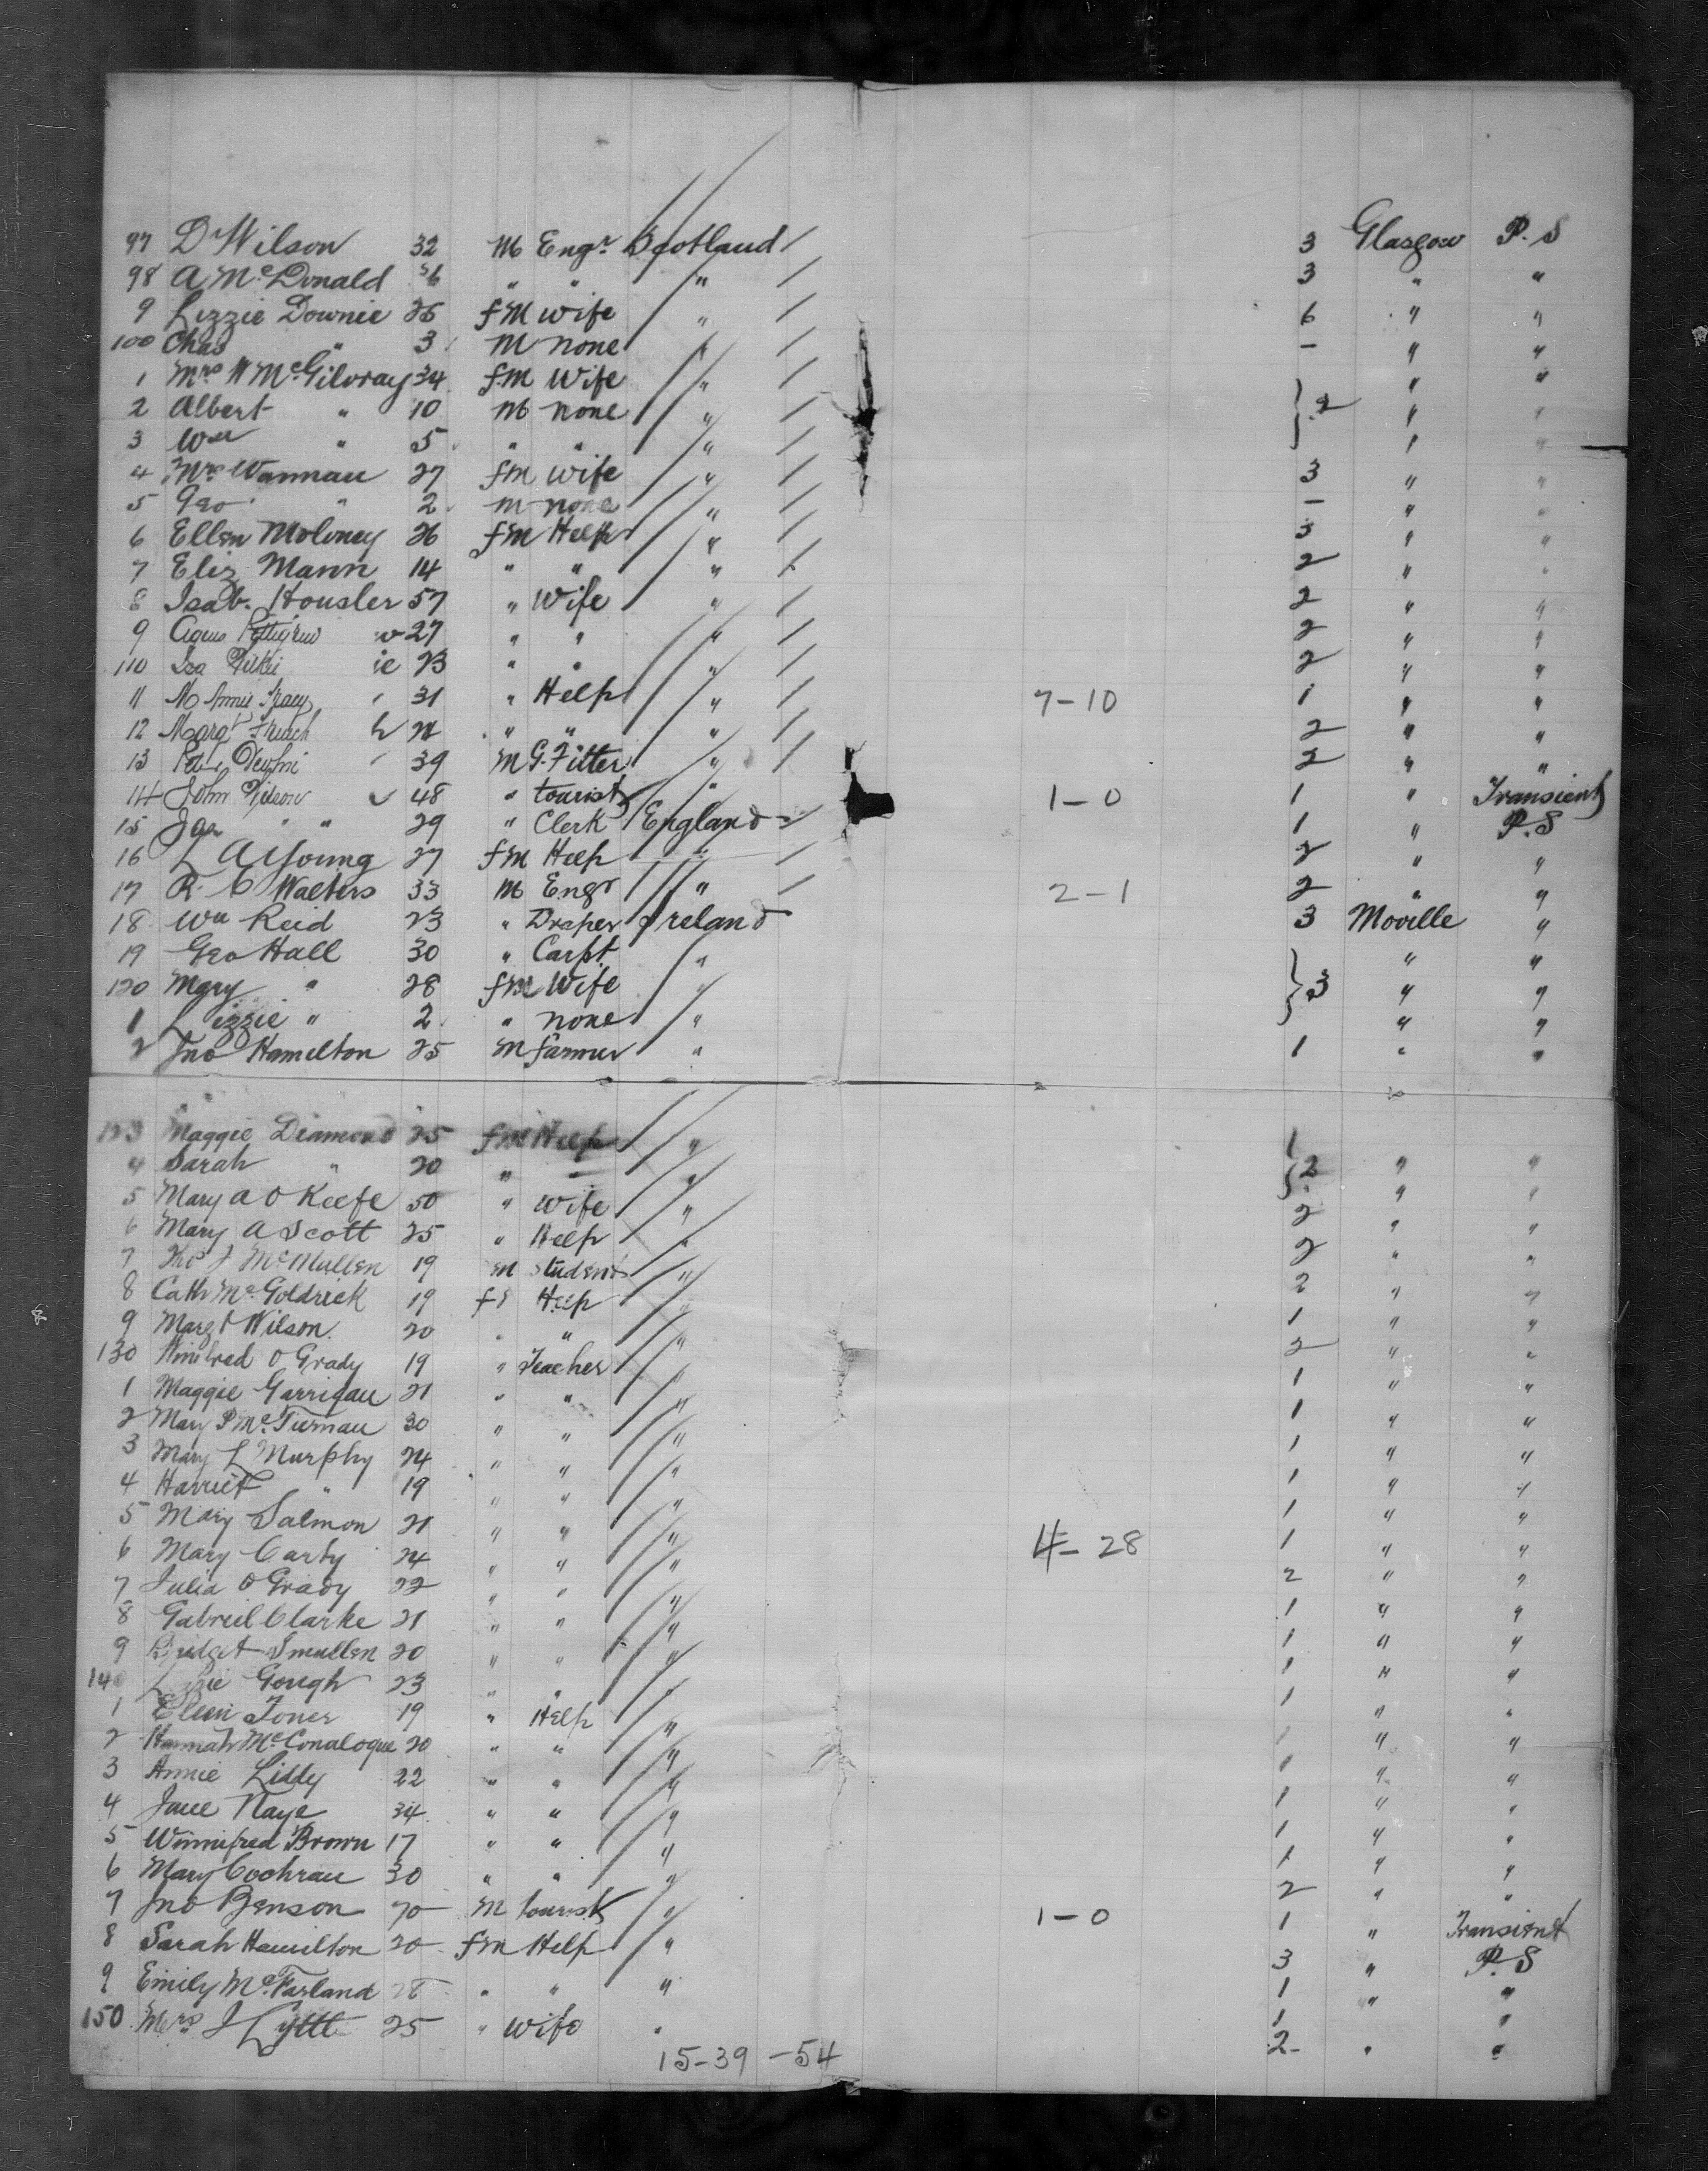 97 D Wilson 32 M Engr Scotland / 3 Glasgow P. S
98 A McDonald " " " / 3 " "
9 Lizzie Downie 26 fM wife " / 6 " "
100 Chas " 3 M none " / – " "
1 Mrs W McGilvray 34 fM Wife " / " "
2 Albert " 10 M none " / } 2 " "
3 Wm " 5 " " " / " "
4 Mrs Wannan 27 fM wife " / 3 " "
5 Geo " 2 m none " / – " "
6 Ellen Moloney 26 fM Help " / 3 " "
7 Eliz Mann 14 " " " / 2 " "
8 Isab. Housler 57 " Wife " / 2 " "
9 Agnes Pettigrew w 27 " " " / 2 " "
110 Isa Wilkie ie 23 " " " / 2 " "
11 M Annie Tracy 31 " Help " / 7-10 1 " "
12 Margt French h 21 " " " / 2 " "
13 Peter 39 M G. Fitter " / 2 " "
14 John Wilson 48 " tourist " 1-0 1 " Transient
15 Jas " 29 " Clerk England 1 " P. S
16 L A Young 27 fM Help " / 2 " "
17 R. C Walters 33 M Engr " / 2-1 2 " "
18 Wm Reid 23 " Draper Ireland 3 Moville "
19 Geo Hall 30 " Carpt " " "
120 Mary " 28 fM Wife " } 3 " "
1 Lizzie " 2 " none " " "
2 Jno Hamilton 25 M farmer " 1 " "
123 Maggie Diamond 25 fM Help "
4 Sarah " 20 " – " } 2 " "
5 Mary A O Keefe 50 " wife " 2 " "
6 Mary A Scott 25 " Help " 2 " "
7 Tho J McMullen 19 M student " 2 " "
8 Cath McGoldrick 19 fS Help " 1 " "
9 Margt Wilson 20 " " " 2 " "
130 Winifred O Grady 19 " Teacher " 1 " "
1 Maggie Garrigan 21 " " " 1 " "
2 Mary P McTiernan 30 " " " 1 " "
3 Mary L Murphy 24 " " " 1 " "
4 Harriet " 19 " " " 1 " "
5 Mary Salmon 21 " " " 1 " "
6 Mary Carty 24 " " " 4-28 2 " "
7 Julia O Grady 22 " " " 1 " "
8 Gabriel Clarke 21 " " " 1 " "
9 Bridget Smullen 20 " " " 1 " "
140 Lizzie Gough 23 " " " 1 " "
1 Ellen Toner 19 " Help " 1 " "
2 Hannah McConalogue 20 " " " 1 " "
3 Annie Liddy 22 " " " 1 " "
4 Jane Kaye 34 " " " 1 " "
5 Winnifred Brown 17 " " " 1 " "
6 Mary Cochran 30 " " " 2 " "
7 Jno Benson 70 M tourist " 1-0 1 " Transient
8 Sarah Hamilton 20 fM Help " 3 " P. S
9 Emily McFarland 28 " " " 1 " "
150 Mrs J Lyttle 25 " wife " 2 " "
15-39-54